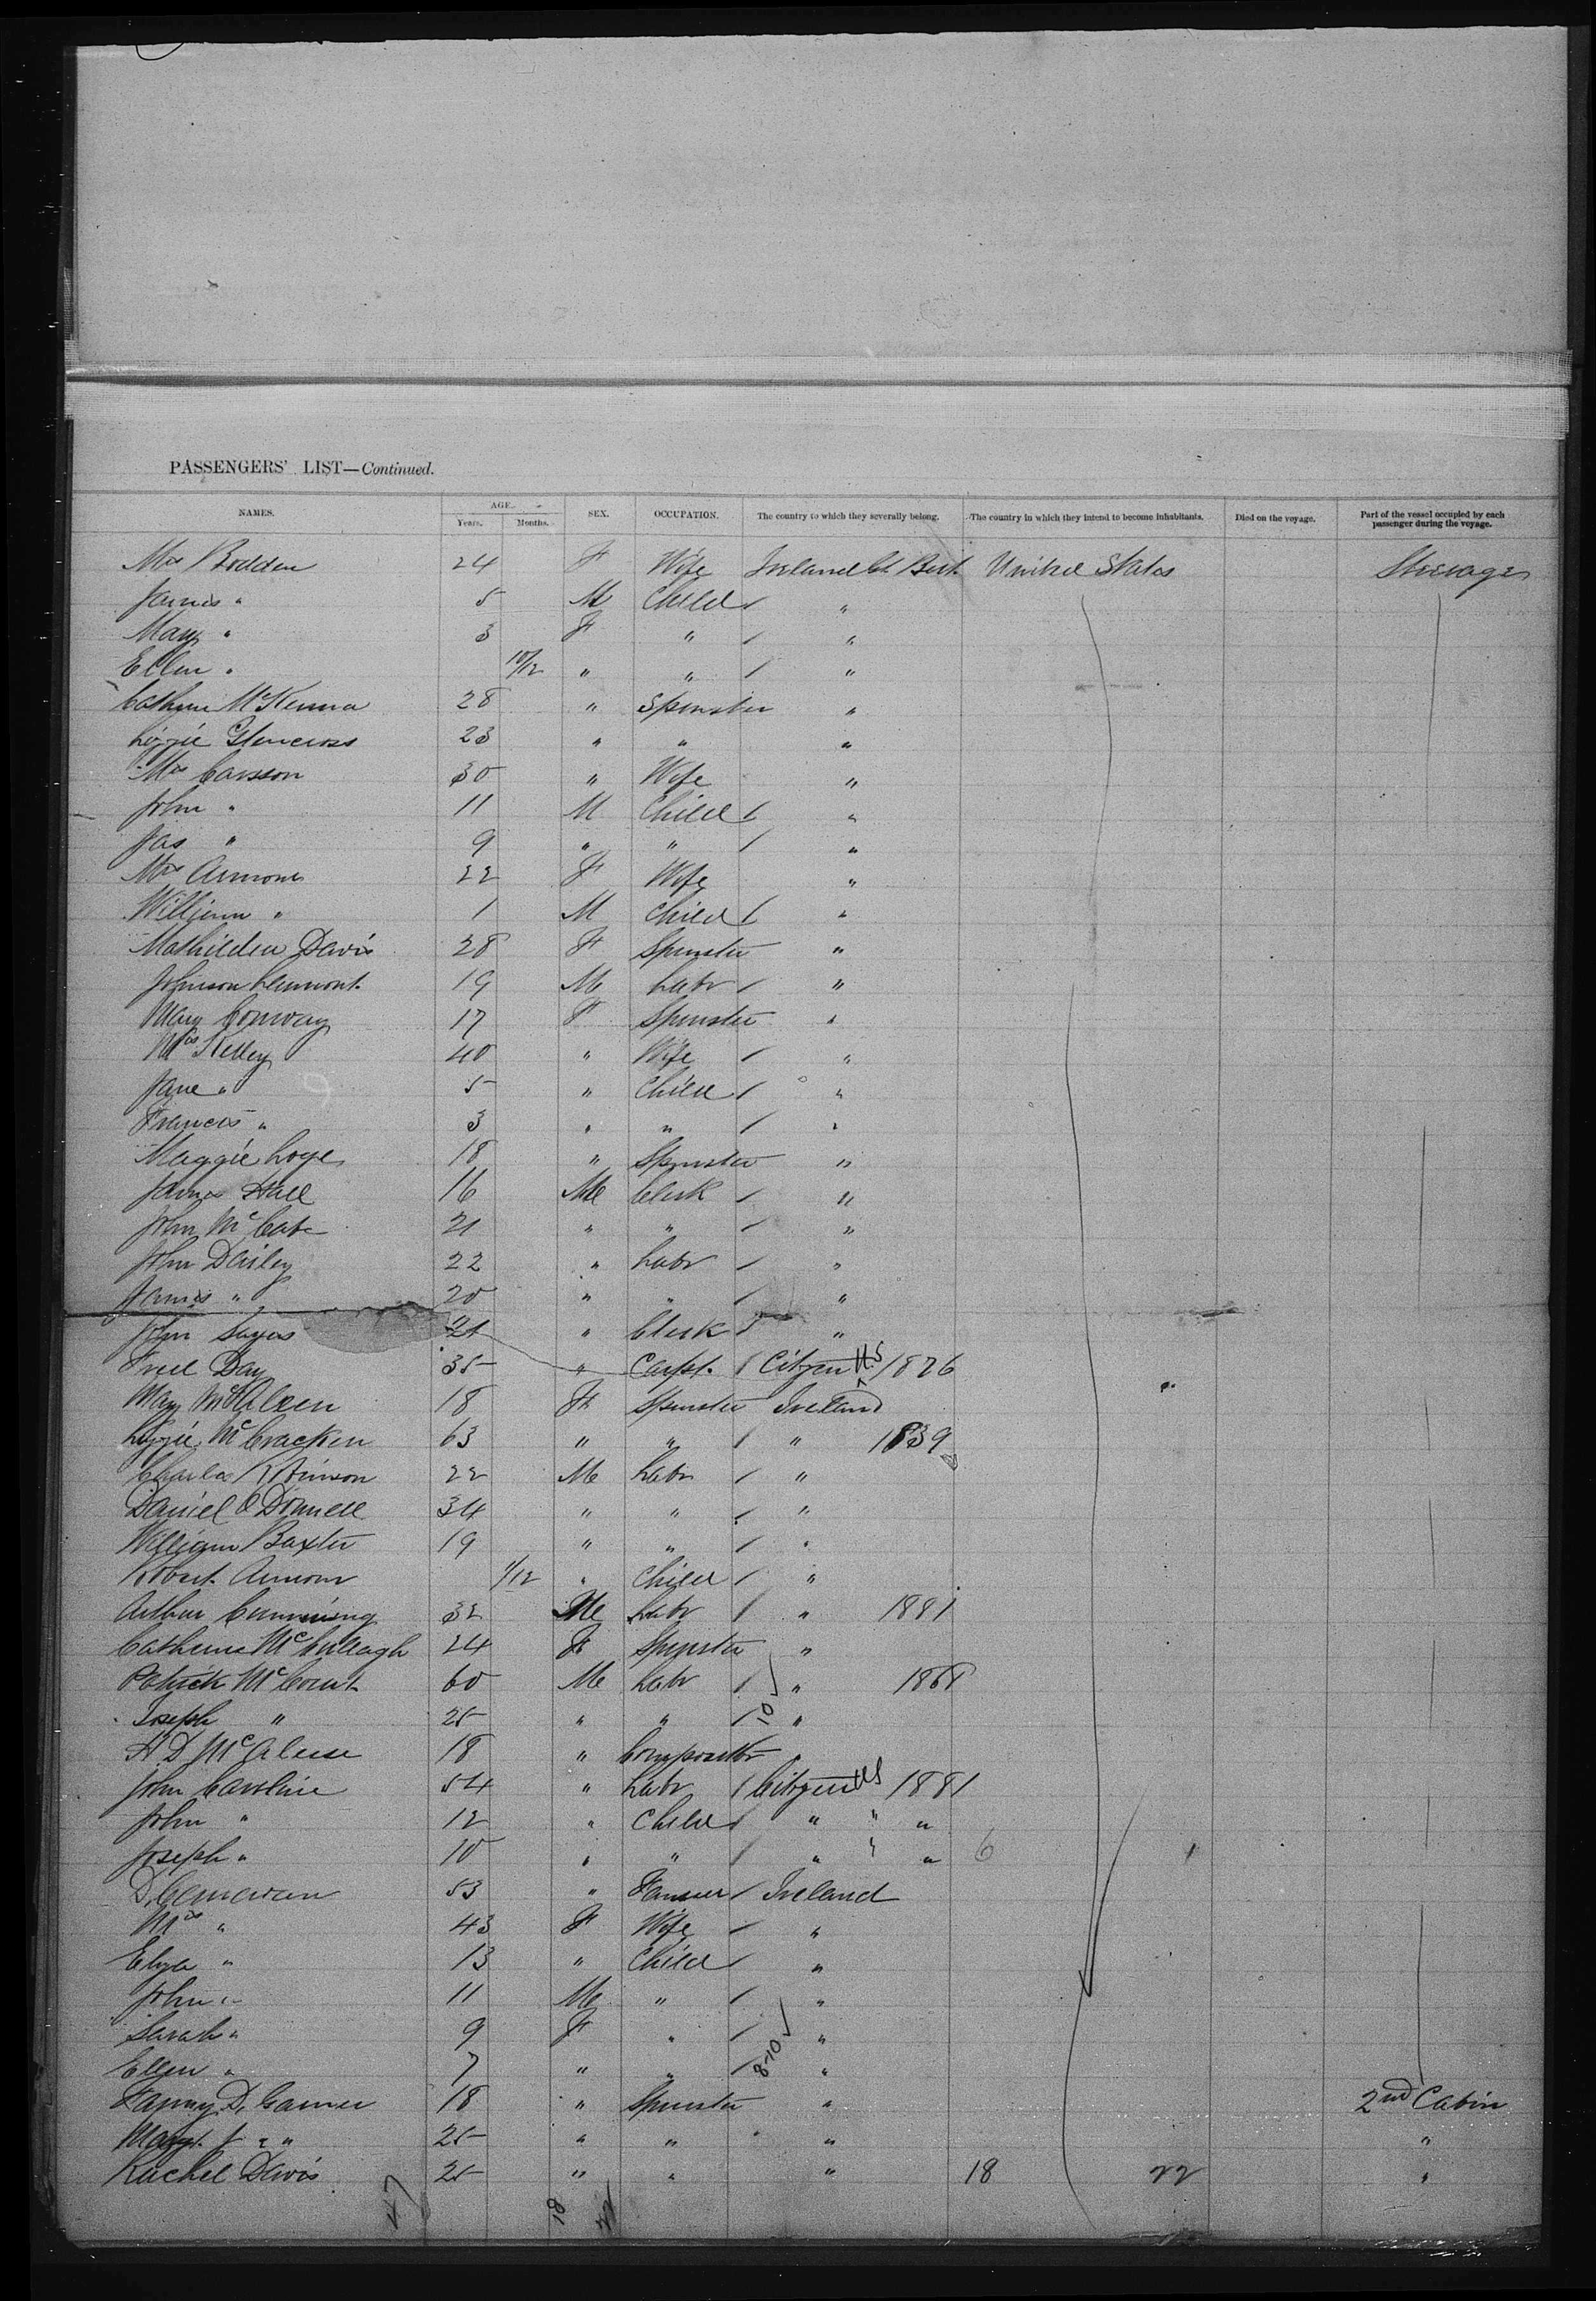 PASSENGERS' LIST—Continued.
NAMES. AGE. Years. Months. SEX. OCCUPATION. The country to which they severally belong. The country in which they intend to become inhabitants. Died on the voyage. Part of the vessel occupied by each passenger during the voyage.
Mrs Bodden 24 F Wife Ireland Gt Brit. United States Steerage
James " 5 M Child / "
Mary " 3 F " / "
Ellen " 10/12 " " / "
Cathrine McKenna 28 " Spinster "
Lizzie Glencross 23 " " "
Mrs Carsson 30 " Wife "
John " 11 M Child / "
Jas " 9 " " / "
Mrs Armour 22 F Wife "
William " 1 M Child / "
Mathilda Davis 28 F Spinster "
Johnson Lammont 19 M Labr / "
Mary Conway 17 F Spinster "
Mrs Kelley 40 " Wife / "
Jane " 5 " Child / "
Frances " 3 " " / "
Maggie Loge 18 " Spinster "
James Hall 16 M Clerk / "
John McCabe 21 " " / "
John Dailey 22 " Labr / "
James " 20 " " / "
John 21 " Clerk / "
Fred Day 35 " Carpt. / Citizen US 1876
Mary 18 F Spinster Ireland
Lizzie McCracken 63 " " / " 1839
Charles Robinson 22 M Labr / "
Daniel O Donnell 34 " " / "
William Baxter 19 " " / "
Robert Armour 1/12 " Child / "
Arthur Cumming 32 M Labr / " 1881
Catherine McCullagh 24 F Spinster "
Patrick McCourt 60 M Labr / " 1868
Joseph " 25 " " / 10 "
H D McAleese 18 " Compositor "
John Caroline 54 " Labr / Citizen US 1881
John " 12 " Child / " " "
Joseph " 10 " " / " " " 6 1
D. 53 " Farmer / Ireland
Mrs " 43 F Wife / "
Eliza " 13 " Child / "
John " 11 M " / "
Sarah " 9 F " / "
Ellen " 7 " " / 8-10 "
Fanny D. 18 " Spinster " 2nd Cabin
Margt. J " " 25 " " " "
Rachel Davis 25 " " " 18 22 "
47 18 22